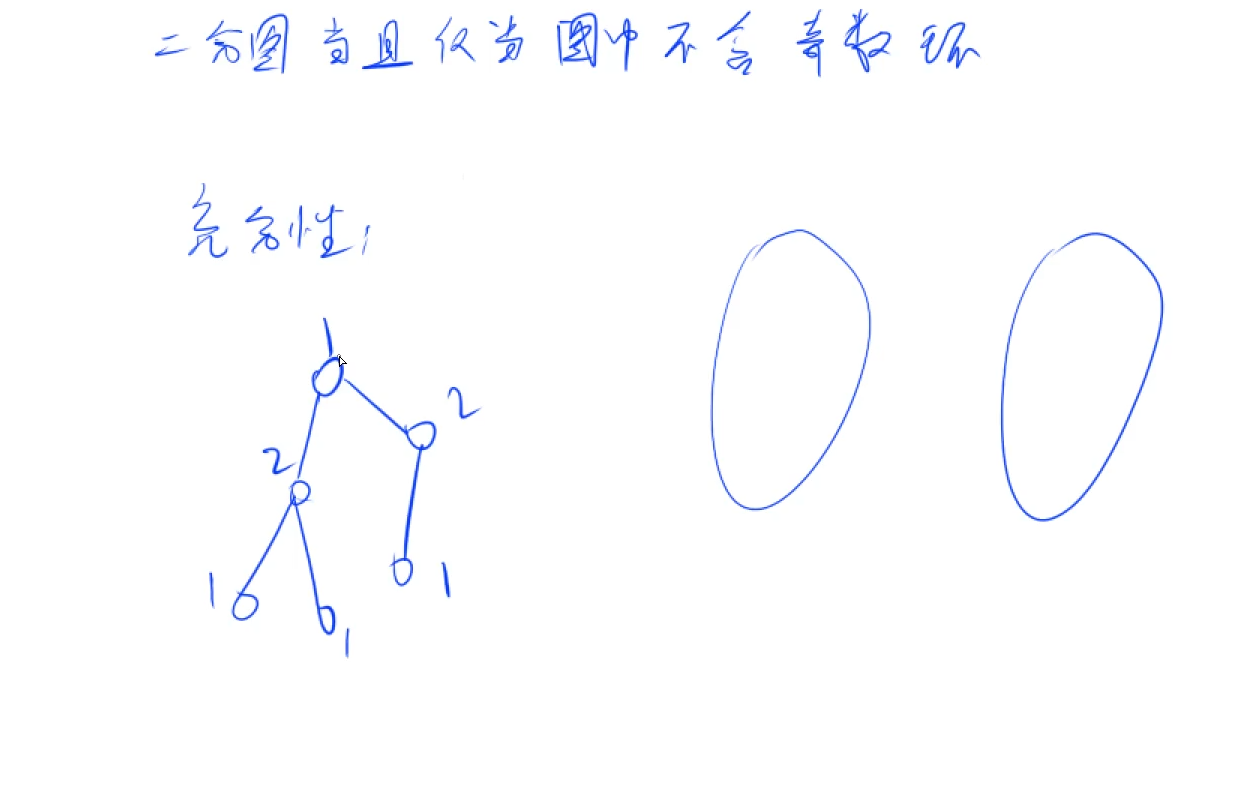 二分图 当且仅当 图中不含 奇数环
充分性:
1
2
2
1
1
1